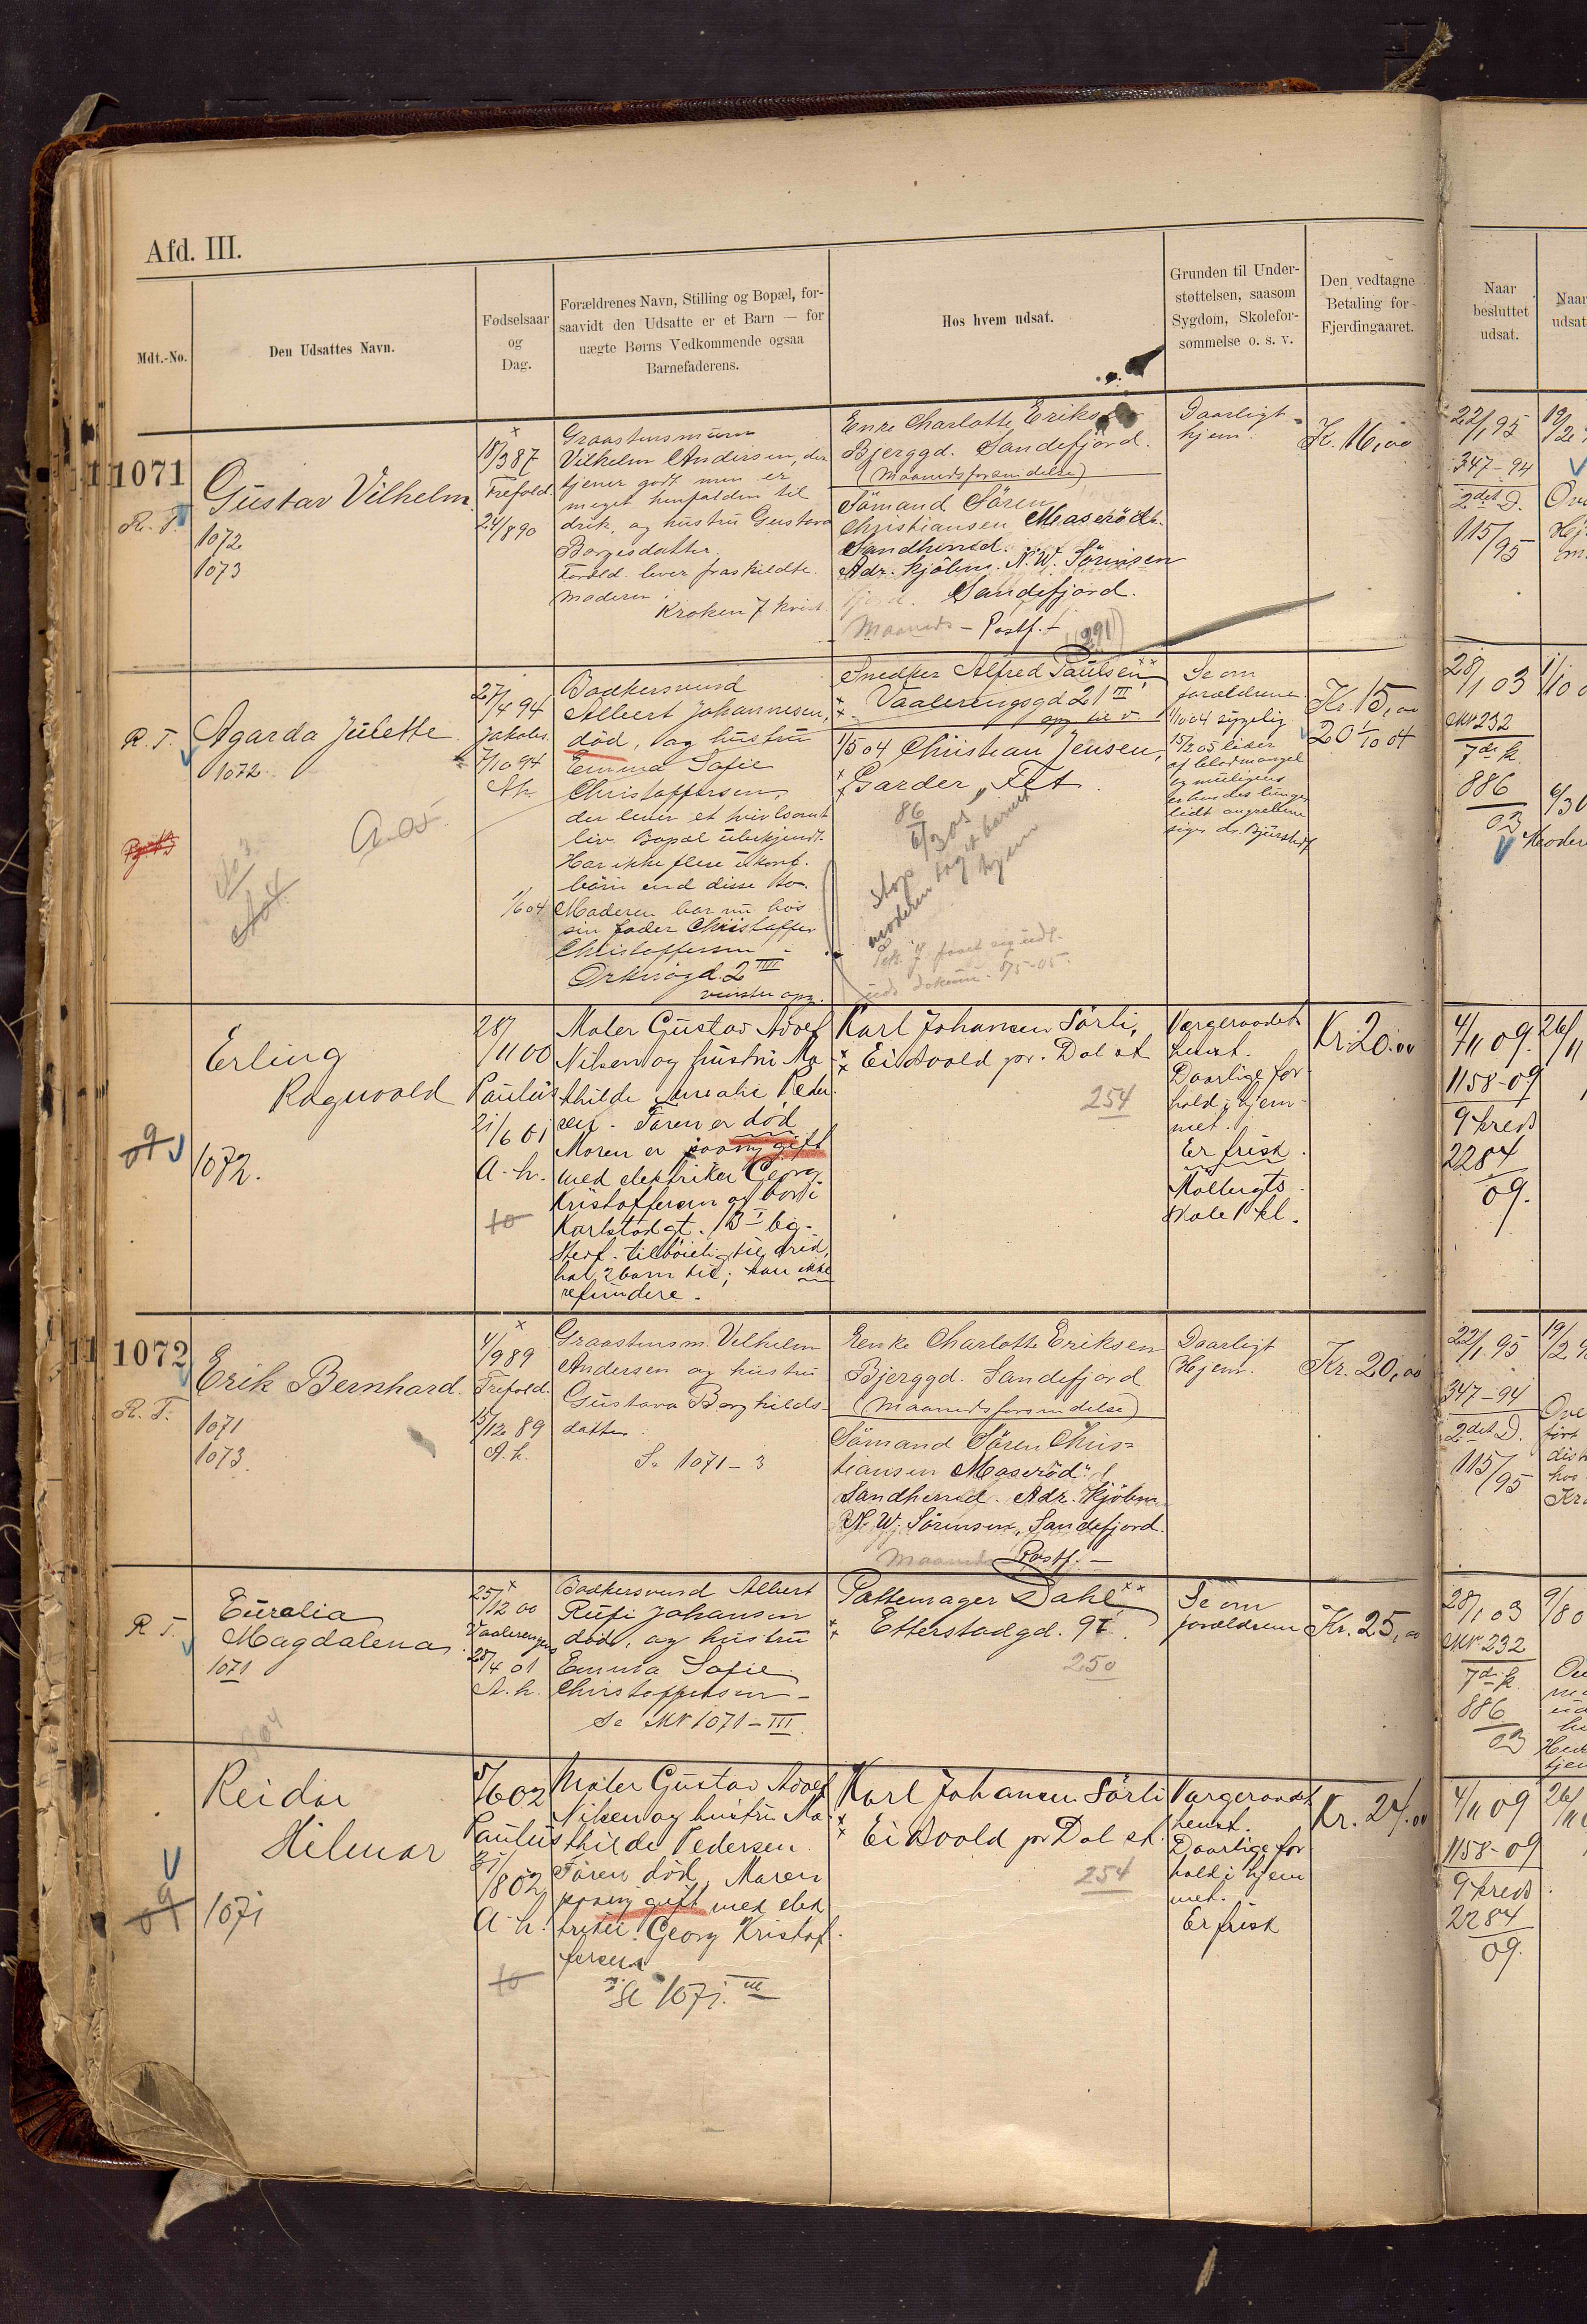 Afd. III.
Mdt.-No.
Den Udsattes Navn.
Fødselsaar
og
Dag.
Forældrenes Navn, Stilling og Bopæl, for-
saavidt den Udsatte er et Barn — for
uægte Børns Vedkommende ogsaa
Barnefaderens.
Hos hvem udsat.
Grunden til Under-
støttelsen, saasom
Sygdom, Skolefor-
sømmelse o. s. v.
Den vedtagne
Betaling for
Fjerdingaaret.
Naar
besluttet
udsat.
Naar
udsat
1071
R. T.
Gustav Vilhelm
1072
1073
18/3 87
Trefold.
24/8 90
Graastensmurer
Vilhelm Andersen, der
tjener godt men er
meget henfalden til
drik, og hustru Gustava
Borgesdatter.
Foræld. lever fraskildte.
Moderen:
Kroken 7 kvist
Enke Charlotte Eriksen
Bjerggd. Sandefjord.
(Maanedsforsendelse)
Sömand Sören
Christiansen Maseröd
Sandherred.
Adr. Kjöbm. N. W. Sörensen
Sandefjord.
Maaneds - Postf.
(291)
Daarligt
hjem.
Kr. 16,00
22/1 95
347-94
2det D.
115/95
R. T.
Agarda Julette
1072.
27/4 94
Jakobs.
7/10 94
Ah.
Bödkersvend
Albert Johannesen,
död, og hustru
Emma Sofie
Christoffersen,
der lever et tvivlsomt
liv. Bopæl ubekjendt.
Har ikke flere ukonf.
börn end disse to.
1/6 04 Moderen bor nu hos
sin fader Christoffer
Christoffersen
Orknögd. 2 IIII
venstre opg.
Snedker Alfred Paulsen
Vaalerengsgd 21 III
opg til v
1/5 04 Christian Jensen,
Garder, Fet
86
6/3 05
Stop
moderen taget barnet
hjem
Se om
forældrene
1/10 04 sygelig
15/2 05 lider
af blodmangel
og muligens
er hendes lunger
lidt angrebne
siger dr. Bjürstedt
Kr. 15,00
20 1/10 04
28/1 03
MN 232
7de k.
886
03
6/3 0
Moder
Erling
Ragnvald
1072.
09
28/11 00
Paulus
21/6 01
A-h.
Maler Gustav Adolf
Nilsen og hustru Ma-
thilde Amalie Peder-
sen. Faren er död
Moren er paany gift
med elektriker Georg
Kristoffersen og bor i
Karlstadgt. 13 I
Stedf. tilböielig til drik,
har 2 barn til; kan ikke
refundere.
Karl Johansen Sörli,
Eidsvold pr. Dal st
254
Værgeraadet
henst.
Daarlige for-
hold i hjem-
met.
Er frisk.
Möllergts
skole 1 kl.
Kr. 20.00
4/11 09.
1158-09
9 kreds
2284
09.
1072
R. T.
Erik Bernhard.
1071
1073.
4/9 89
Trefold.
15/12 89
A.h.
Graastensm. Vilhelm
Andersen og hustru
Gustava Borghilds-
datter.
Se 1071-3
Enke Charlotte Eriksen
Bjerggd. Sandefjord
(Maanedsforsendelse)
Sömand Sören Chris-
tiansen Maseröd
Sandherred. Adr. Kjöbm
N. W. Sörensen, Sandefjord.
Maaneds Postf. -
Daarligt
Hjem.
Kr. 20,00
22/1 95
347-94
2det D.
115/95
R T.
Euralia
Magdalena.
1071
25/12 00
Vaalerengen
28/4 01
A.h.
Bödkersvend Albert
Rufi Johansen
död, og hustru
Emma Sofie
Christoffersen -
Se MN 1071-III
Pottemager Dahl
Etterstadgd. 9 I.
250
Se om
forældrene
Kr. 25,00
28/1 03
MN 232
7de k.
886
03
Reidar
Hilmar
1071
09
5/6 02
Paulus
31/8 02
A-h.
Maler Gustav Adolf
Nilsen og hustru Ma-
thilde Pedersen
Faren död, Moren
paany gift med elek
triker Georg Kristof-
fersen
Se 1071. III
Karl Johansen Sörli
Eidsvold pr Dal st.
254
Værgeraadet
henst.
Daarlige for
hold i hjem
met.
Er frisk
Kr. 24.00
4/11 09
1158-09
9 kreds
2284
09.